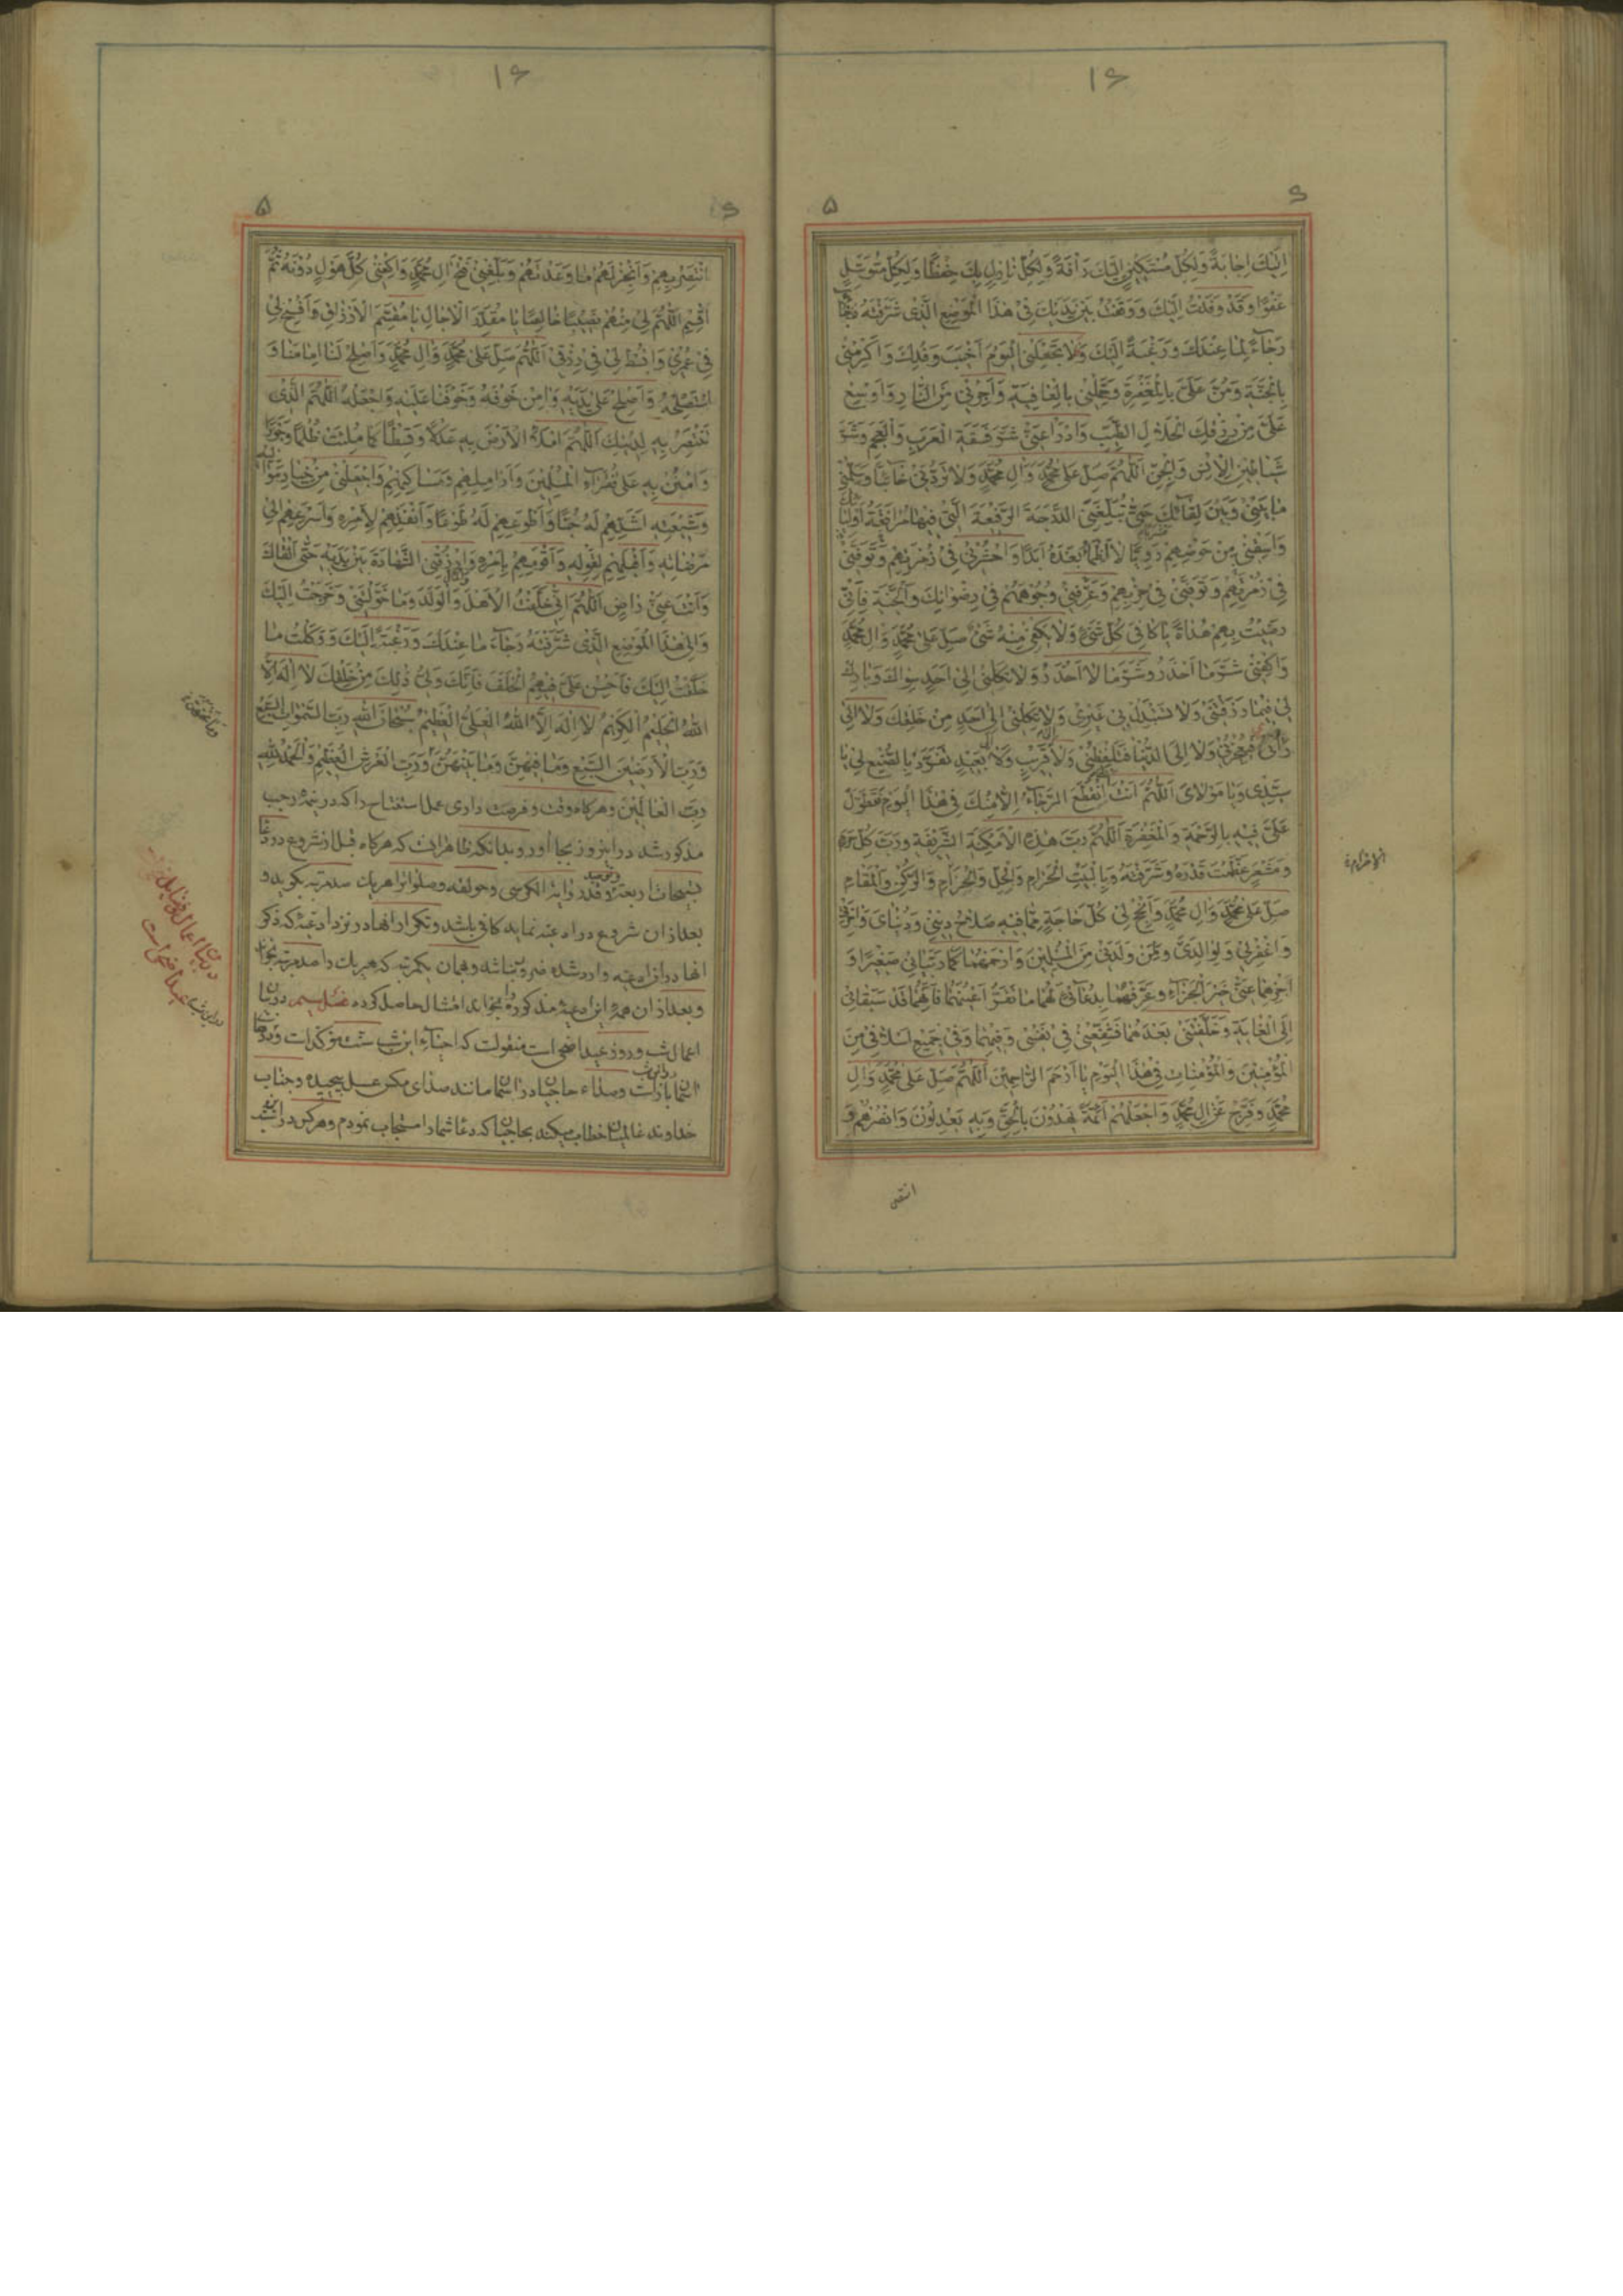 ۱۶
۶
۵
اِلَیْکَ اِجابَةً وَلِکُلِّ مُسْتَکینٍ اِلَیْکَ رَأْفَةً وَلِکُلِّ نازِلٍ بِکَ حِفْظًا وَلِکُلِّ مُتَوَسِّلٍ
عَفْوًا وَقَدْ وَفَدْتُ اِلَیْکَ وَوَقَفْتُ بَیْنَ یَدَیْکَ فی هٰذَا الْمَوْضِعِ الَّذی شَرَّفْتَهُ
رَجاءً لِما عِنْدَکَ وَرَغْبَةً اِلَیْکَ فَلا تَجْعَلْنی الْیَوْمَ اَخْیَبَ وَفْدِکَ وَاَکْرِمْنی
بِالْجَنَّةِ وَمُنَّ عَلَیَّ بِالْمَغْفِرَةِ وَجَمِّلْنی بِالْعافِیَةِ وَاَجِرْنی مِنَ النّارِ وَاَوْسِعْ
عَلَیَّ مِنْ رِزْقِکَ الْحَلالِ الطَّیِّبِ وَادْرَأْ عَنّی شَرَّ فَسَقَةِ الْعَرَبِ وَالْعَجَمِ وَشَرَّ
شَیاطینِ الْاِنْسِ وَالْجِنِّ اَللّٰهُمَّ صَلِّ عَلی مُحَمَّدٍ وَآلِ مُحَمَّدٍ وَلا تَرُدَّنی خائِبًا وَسَلِّمْنی
ما بَیْنی وَبَیْنَ لِقائِکَ حَتّی تُبَلِّغَنی الدَّرَجَةَ الرَّفیعَةَ الَّتی فیها مُرافَقَةُ اَوْلِیائِکَ
وَاسْقِنی مِنْ حَوْضِهِمْ رَوِیًّا لا اَظْمَأُ بَعْدَهُ اَبَدًا وَاحْشُرْنی فی زُمْرَتِهِمْ وَتَوَفَّنی
فی زُمْرَتِهِمْ وَتَوَفَّنی فی حِزْبِهِمْ وَعَرِّفْنی وُجُوهَهُمْ فی رِضْوانِکَ وَالْجَنَّةِ فَاِنّی
رَضیتُ بِهِمْ هُداةً یا کافِیَ کُلِّ شَیْءٍ وَلا یَکْفی مِنْهُ شَیْءٌ صَلِّ عَلی مُحَمَّدٍ وَآلِ مُحَمَّدٍ
وَاکْفِنی شَرَّ ما اَحْذَرُ وَشَرَّ ما لا اَحْذَرُ وَلا تَکِلْنی اِلی اَحَدٍ سِواکَ وَبارِکْ
لی فیما رَزَقْتَنی وَلا تَسْتَبْدِلْ بی غَیْری وَلا تَکِلْنی اِلی اَحَدٍ مِنْ خَلْقِکَ وَلا اِلی
رَأْیی فَیُعْجِزَنی وَلا اِلَی الدُّنْیا فَتَلْفِظَنی وَلا قَریبٍ وَلا بَعیدٍ تَفَرَّدْ بِالصُّنْعِ لی یا
سَیِّدی وَیا مَوْلایَ اَللّٰهُمَّ اَنْتَ اَنْتَ انْقَطَعَ الرَّجاءُ اِلّا مِنْکَ فی هٰذَا الْیَوْمِ تَطَوَّلْ
عَلَیَّ فیهِ بِالرَّحْمَةِ وَالْمَغْفِرَةِ اَللّٰهُمَّ رَبَّ هٰذِهِ الْاَمْکِنَةِ الشَّریفَةِ وَرَبَّ کُلِّ حَرَمٍ
وَمَشْعَرٍ عَظَّمْتَ قَدْرَهُ وَشَرَّفْتَهُ وَبِالْبَیْتِ الْحَرامِ وَالْحِلِّ وَالْحَرامِ وَالرُّکْنِ وَالْمَقامِ
صَلِّ عَلی مُحَمَّدٍ وَآلِ مُحَمَّدٍ وَاَنْجِحْ لی کُلَّ حاجَةٍ مِمّا فیهِ صَلاحُ دینی وَدُنْیایَ وَآخِرَتی
وَاغْفِرْ لی وَلِوالِدَیَّ وَمَنْ وَلَدَنی مِنَ الْمُسْلِمینَ وَارْحَمْهُما کَما رَبَّیانی صَغیرًا وَ
اَجْزِهِما عَنّی خَیْرَ الْجَزاءِ وَعَرِّفْهُما بِدُعائی لَهُما ما تَقَرُّ اَعْیُنُهُما فَاِنَّهُما قَدْ سَبَقانی
اِلَی الْغایَةِ وَخَلَّفْتَنی بَعْدَهُما فَشَفِّعْنی فی نَفْسی وَفیهِما وَفی جَمیعِ اَسْلافی مِنَ
الْمُؤْمِنینَ وَالْمُؤْمِناتِ فی هٰذَا الْیَوْمِ یا اَرْحَمَ الرّاحِمینَ اَللّٰهُمَّ صَلِّ عَلی مُحَمَّدٍ وَآلِ
مُحَمَّدٍ وَفَرِّجْ عَنْ آلِ مُحَمَّدٍ وَاجْعَلْهُمْ اَئِمَّةً یَهْدُونَ بِالْحَقِّ وَبِهِ یَعْدِلُونَ وَانْصُرْهُمْ وَ
انتصر
۱۶
۶
۵
انْتَصِرْ بِهِمْ وَاَنْجِزْ لَهُمْ ما وَعَدْتَهُمْ وَبَلِّغْنی فَتْحَ آلِ مُحَمَّدٍ وَاکْفِنی کُلَّ هَوْلٍ دُونَهُ ثُمَّ
اقْسِمِ اللّٰهُمَّ لی مِنْهُمْ نَصیبًا خالِصًا یا مُقَدِّرَ الْآجالِ یا مُقَسِّمَ الْاَرْزاقِ وَافْسَحْ لی
فی عُمْری وَابْسُطْ لی فی رِزْقی اَللّٰهُمَّ صَلِّ عَلی مُحَمَّدٍ وَآلِ مُحَمَّدٍ وَاَصْلِحْ لَنا اِمامَنا وَ
اسْتَصْلِحْهُ وَاَصْلِحْ عَلی یَدَیْهِ وَآمِنْ خَوْفَهُ وَخَوْفَنا عَلَیْهِ وَاجْعَلْهُ اللّٰهُمَّ الَّذی
تَنْتَصِرُ بِهِ لِدینِکَ اَللّٰهُمَّ امْلَأِ الْاَرْضَ بِهِ عَدْلًا وَقِسْطًا کَما مُلِئَتْ ظُلْمًا وَجَوْرًا
وَامْنُنْ بِهِ عَلی فُقَراءِ الْمُسْلِمینَ وَاَرامِلِهِمْ وَمَساکینِهِمْ وَاجْعَلْنی مِنْ خِیارِ مَوالیهِ
وَشیعَتِهِ اَشَدِّهِمْ لَهُ حُبًّا وَاَطْوَعِهِمْ لَهُ طَوْعًا وَاَنْفَذِهِمْ لِاَمْرِهِ وَاَسْرَعِهِمْ اِلی
مَرْضاتِهِ وَاَقْبَلِهِمْ لِقَوْلِهِ وَاَقْوَمِهِمْ بِاَمْرِهِ وَارْزُقْنی الشَّهادَةَ بَیْنَ یَدَیْهِ حَتّی اَلْقاکَ
وَاَنْتَ عَنّی راضٍ اَللّٰهُمَّ اِنّی خَلَّفْتُ الْاَهْلَ وَالْوَلَدَ وَما خَوَّلْتَنی وَخَرَجْتُ اِلَیْکَ
وَاِلی هٰذَا الْمَوْضِعِ الَّذی شَرَّفْتَهُ رَجاءَ ما عِنْدَکَ وَرَغْبَةً اِلَیْکَ وَوَکَلْتُ ما
خَلَّفْتُ اِلَیْکَ فَاَحْسِنْ عَلَیَّ فیهِمُ الْخَلَفَ فَاِنَّکَ وَلِیُّ ذٰلِکَ مِنْ خَلْقِکَ لا اِلٰهَ اِلَّا
اللّٰهُ الْحَلیمُ الْکَریمُ لا اِلٰهَ اِلَّا اللّٰهُ الْعَلِیُّ الْعَظیمُ سُبْحانَ اللّٰهِ رَبِّ السَّمٰواتِ السَّبْعِ
وَرَبِّ الْاَرَضینَ السَّبْعِ وَما فیهِنَّ وَما بَیْنَهُنَّ وَرَبِّ الْعَرْشِ الْعَظیمِ وَالْحَمْدُ لِلّٰهِ
رَبِّ الْعالَمینَ وهرکاه وقت وفرصت داری عمل استفتاح را که در نیمهٔ رجب
مذکور شد در اینروز بجا آور وبدانکه ظاهر انست که هرکاه قبل از شروع در دعا
تسبیحات اربعه وقدر وایة الکرسی وحولقه وصلوات هر یک سه مرتبه بکوید و
بعد از ان شروع در ادعیه نماید کافی باشد وتکرار انها در نزد ادعیهٔ که ذکر
انها در ادعیه وارد شده ضرور نباشد وهمان یکمرتبه که هر یک را صد مرتبه بخواند
وبعد از ان همهٔ این ادعیهٔ مذکوره را بخواند امتثال حاصل کرده فصل سیم در بیان
اعمال شب وروز عید اضحی است منقولست که احیاء این شب سنت مؤکد است
آسمانها باز است وصداء حاجیان در آسمان مانند صدای مکس عسل پیچیده وجناب
خداوند عالمیان خطاب میکند بحاجیان که دعا شما را مستجاب نمودم وهرکس در این شب
در بیان اعمال وفضایل
عید اضحی است